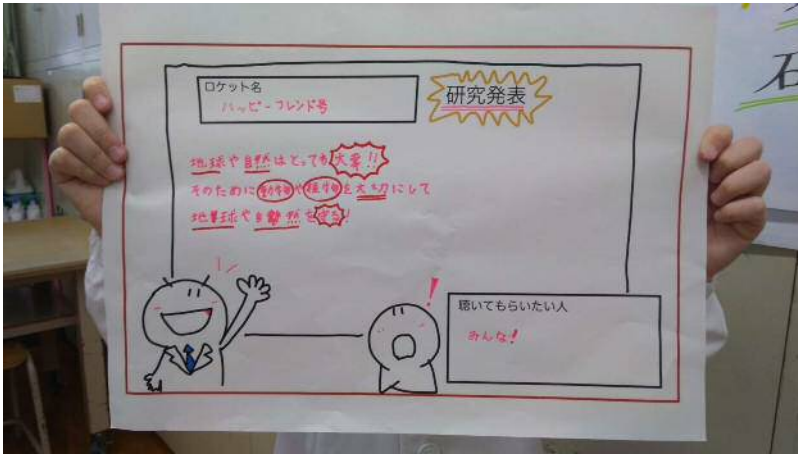 ロケット名
ハッピーフレンド号
研究発表
地球や自然はとっても大事!!
そのために動物や植物を大切にして
地球や自然を守ろう!
聴いてもらいたい人
みんな!
石